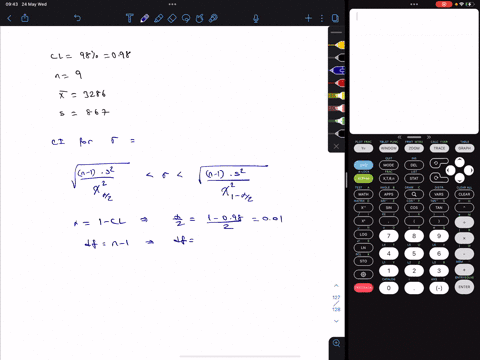 09:43 24 May Wed
CL = 98% = 0.98
n = 9
x̄ = 3286
s = 867
CI for σ =
√((n-1) . s² / χ²_α/2) < σ < √((n-1) . s² / χ²_1-α/2)
α = 1-CL ⇒ α/2 = (1-0.98)/2 = 0.01
df = n-1 ⇒ df =
127
128
WINDOW
ZOOM
TRACE
GRAPH
MODE
DEL
X,T,θ,n
STAT
MATH
APPS
PRGM
VARS
CLEAR
SIN
COS
TAN
LOG
7
8
9
LN
4
5
6
STO
1
2
3
0
.
(-)
ENTER